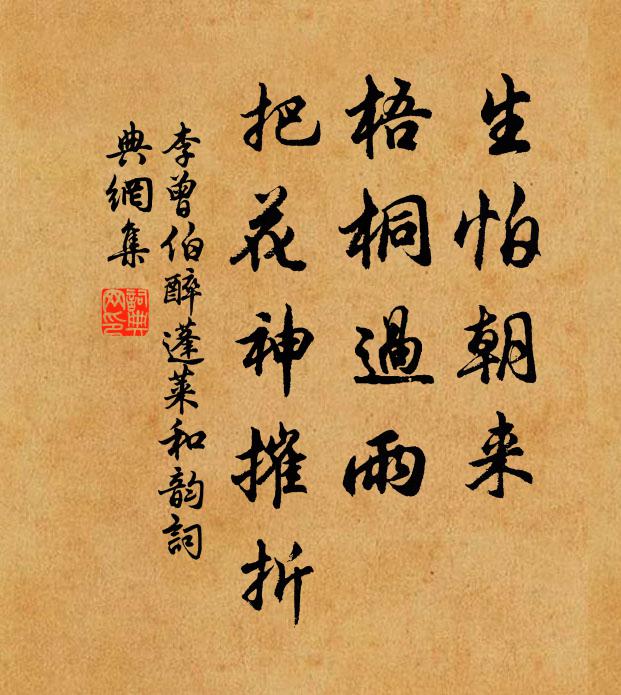 生怕朝来
梧桐過雨
把花神摧折
李曾伯醉蓬莱和韵詞
典網集
詞典网印